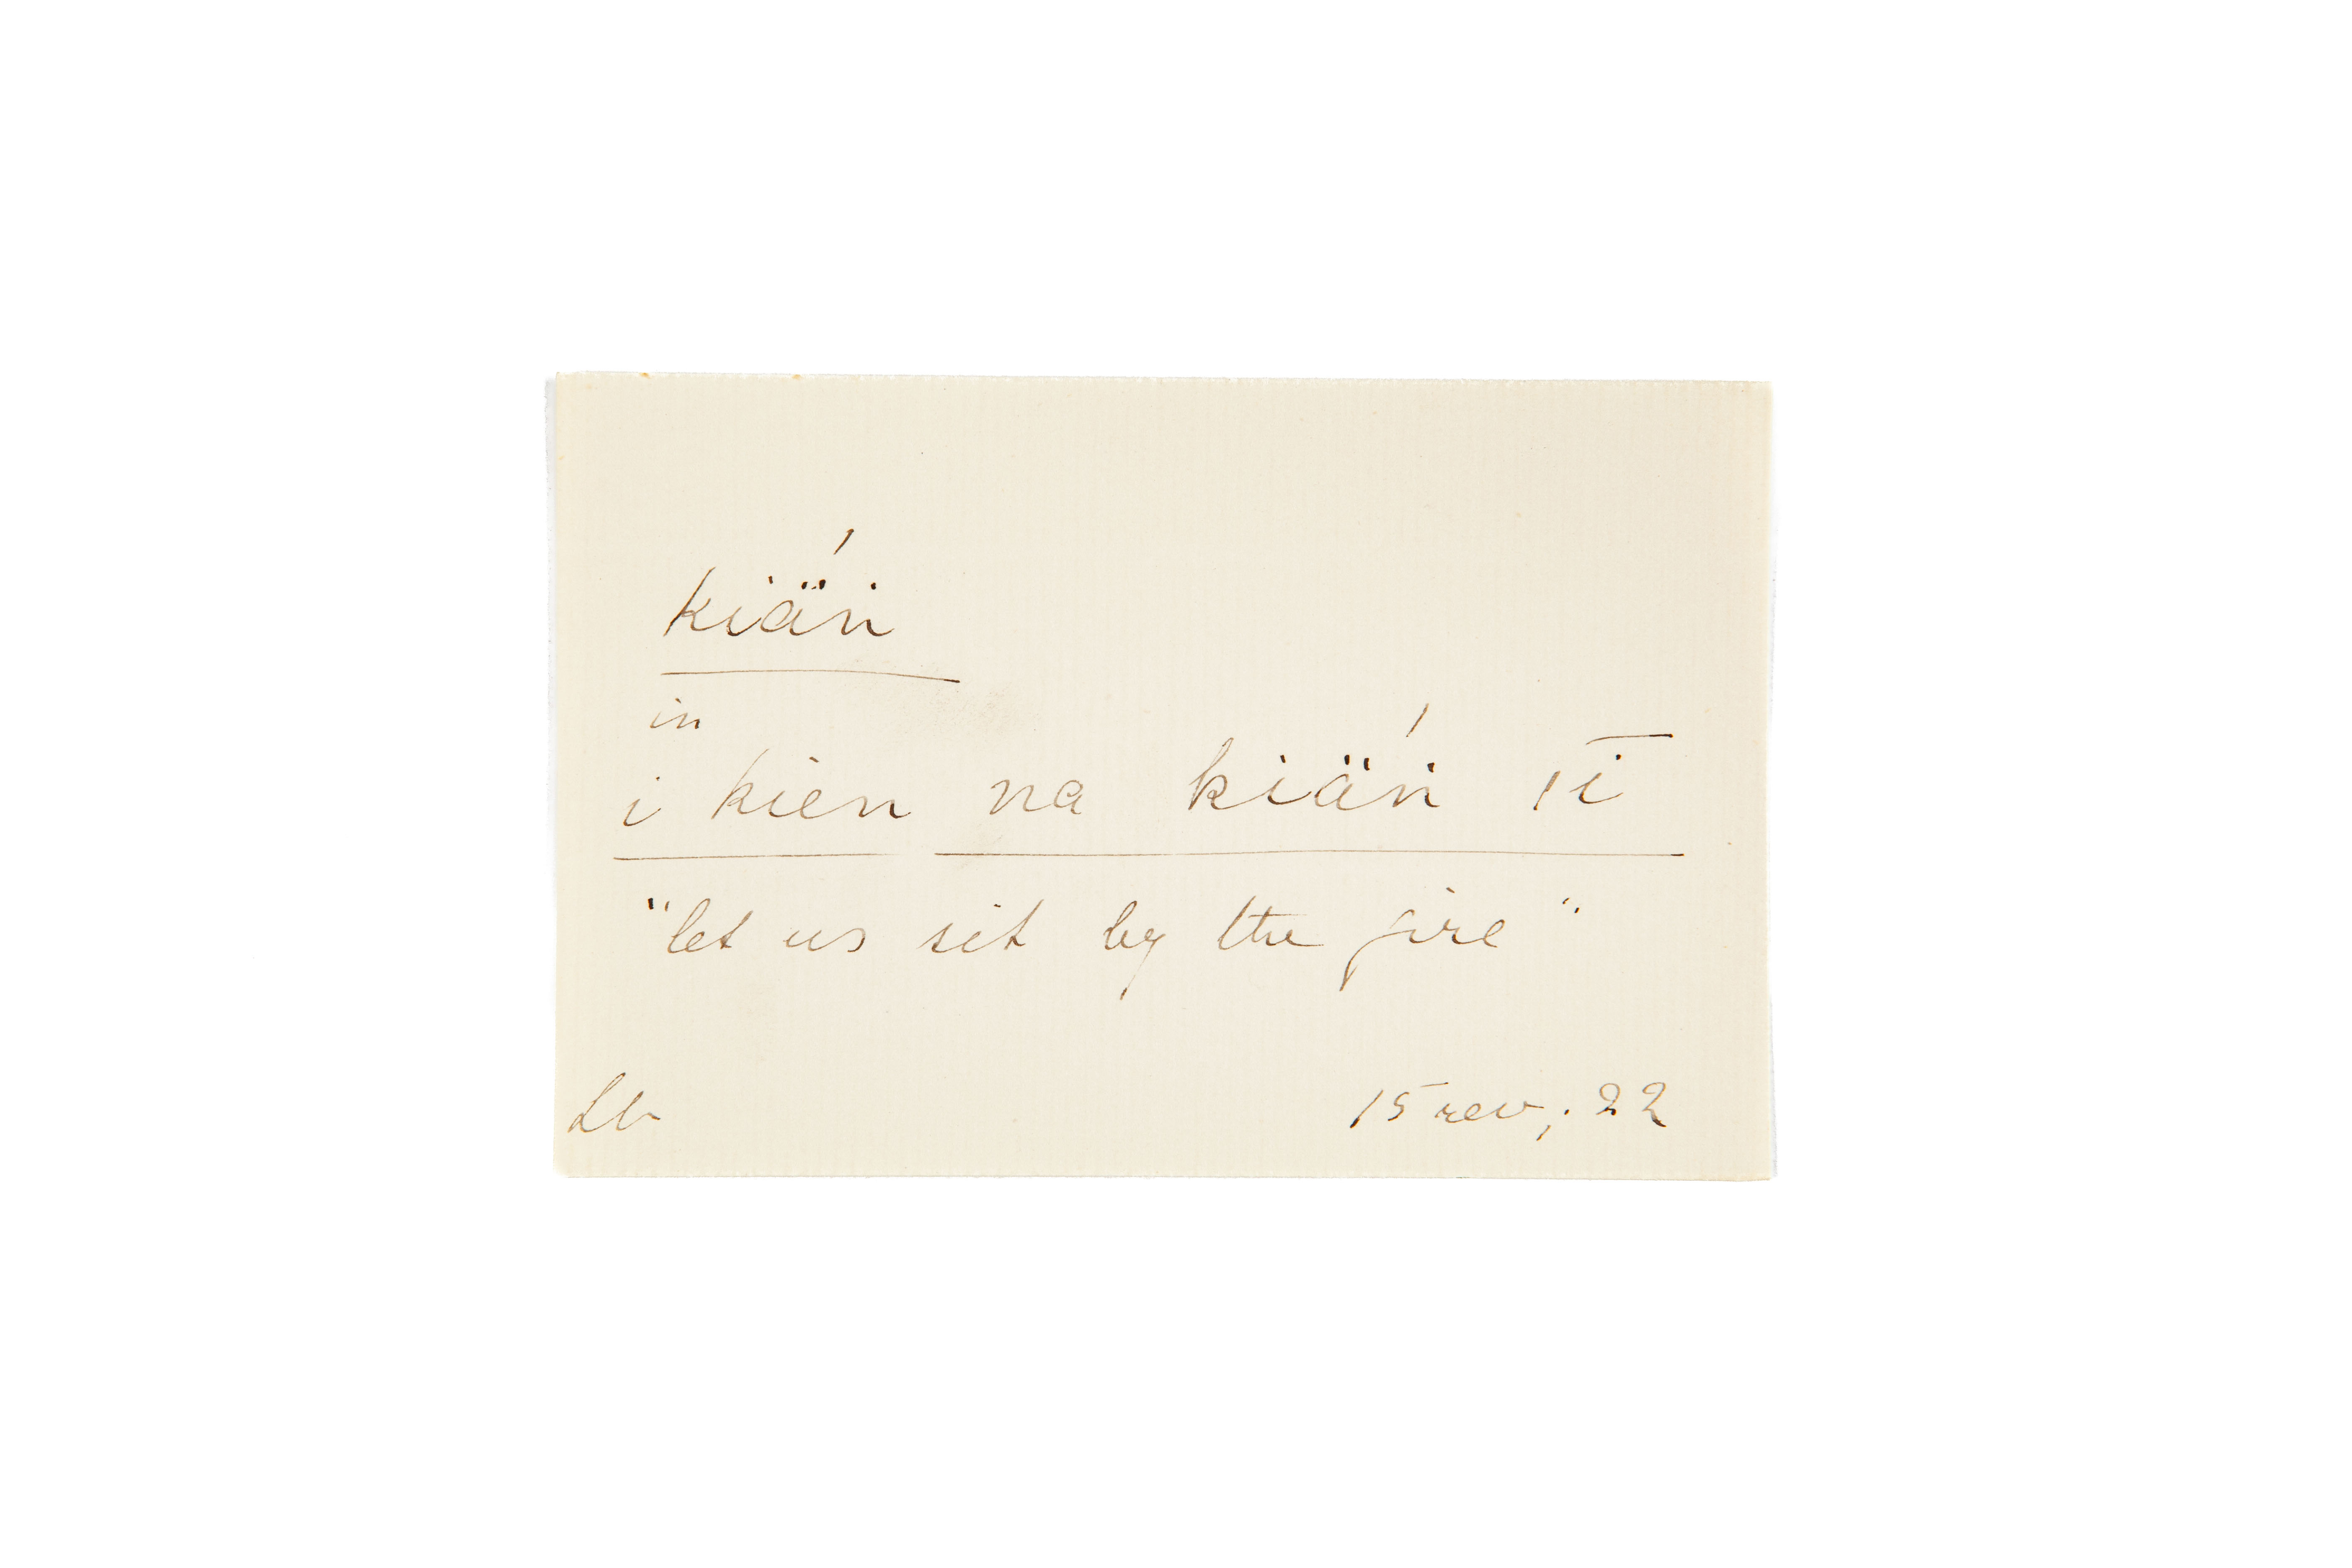 kiä́ṅ
in
i kien na kiä́ṅ |ī
"let us sit by the fire"
Lb 15 rev; 22